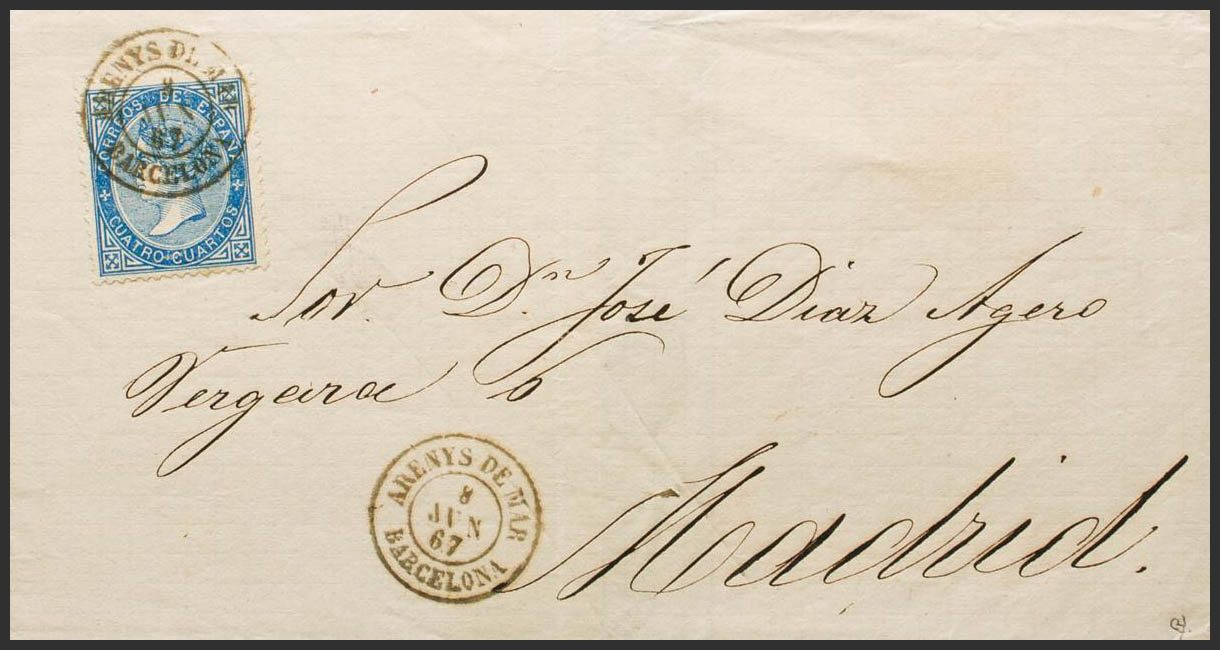 ARENYS DE MAR
8
JUN
67
BARCELONA
CORREOS DE ESPAÑA
CUATRO CUARTOS
Sor. Dn. José Diaz Agero
Vergara 6
Madrid.
ARENYS DE MAR
8
JUN
67
BARCELONA